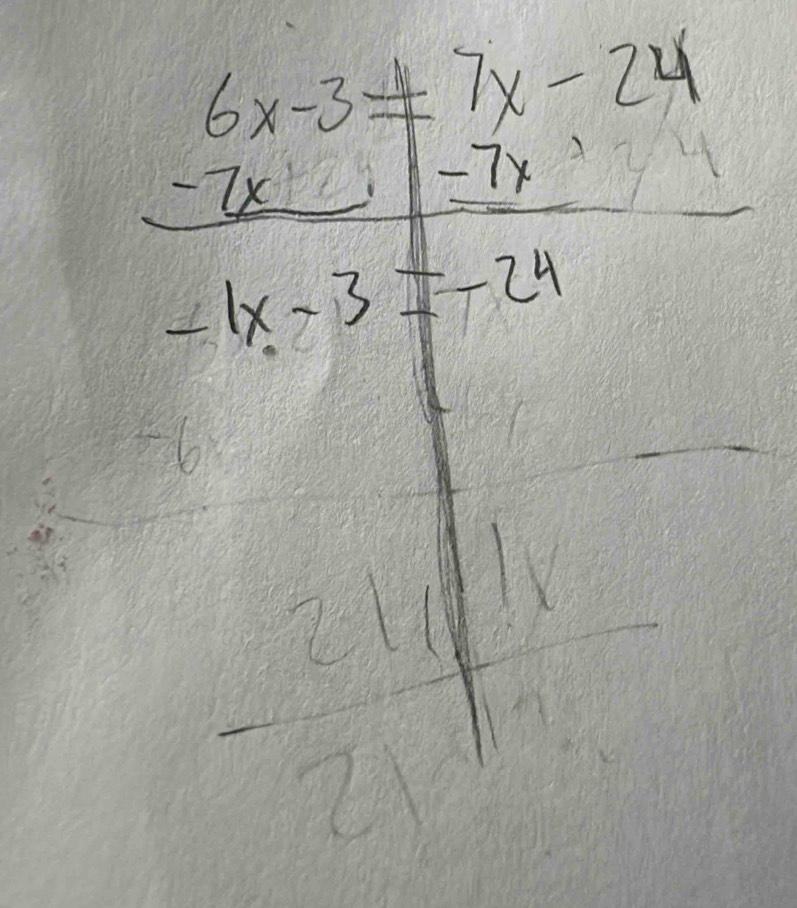 6x-3=7x-24
-7x -7x
-1x-3=-24
-6
21 1x
21